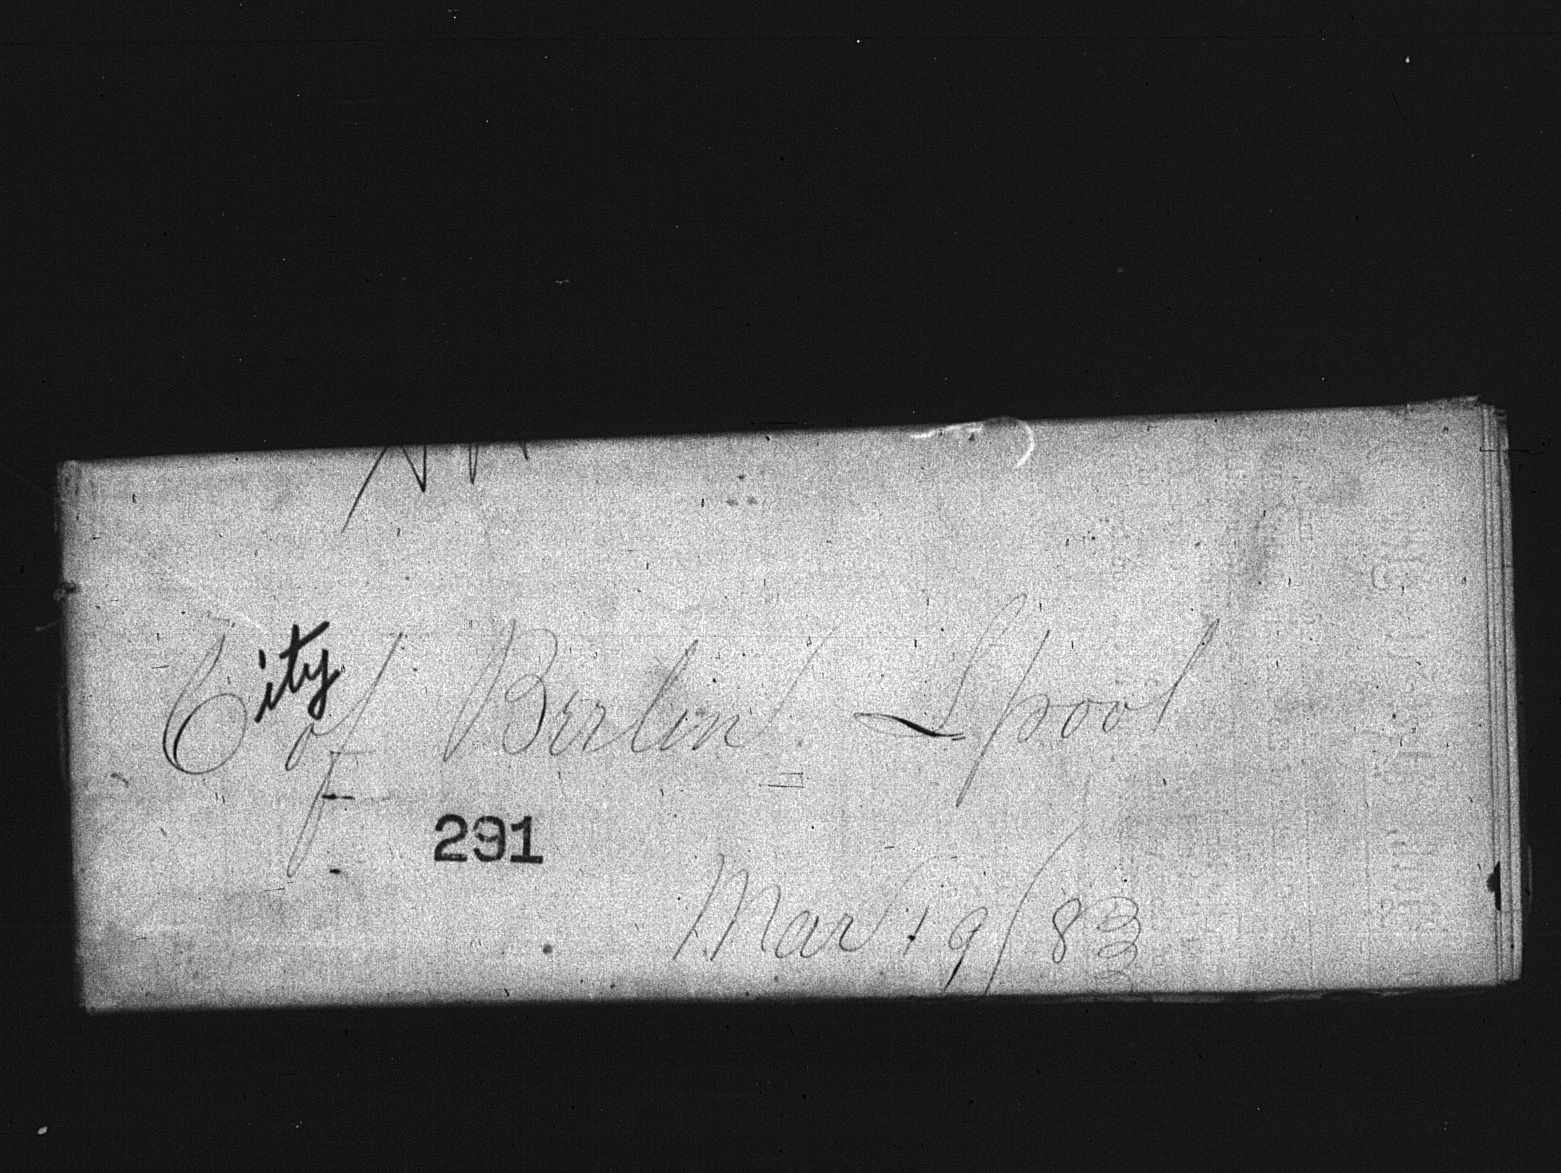 City of Berlin L'pool
291
Mar 19/83